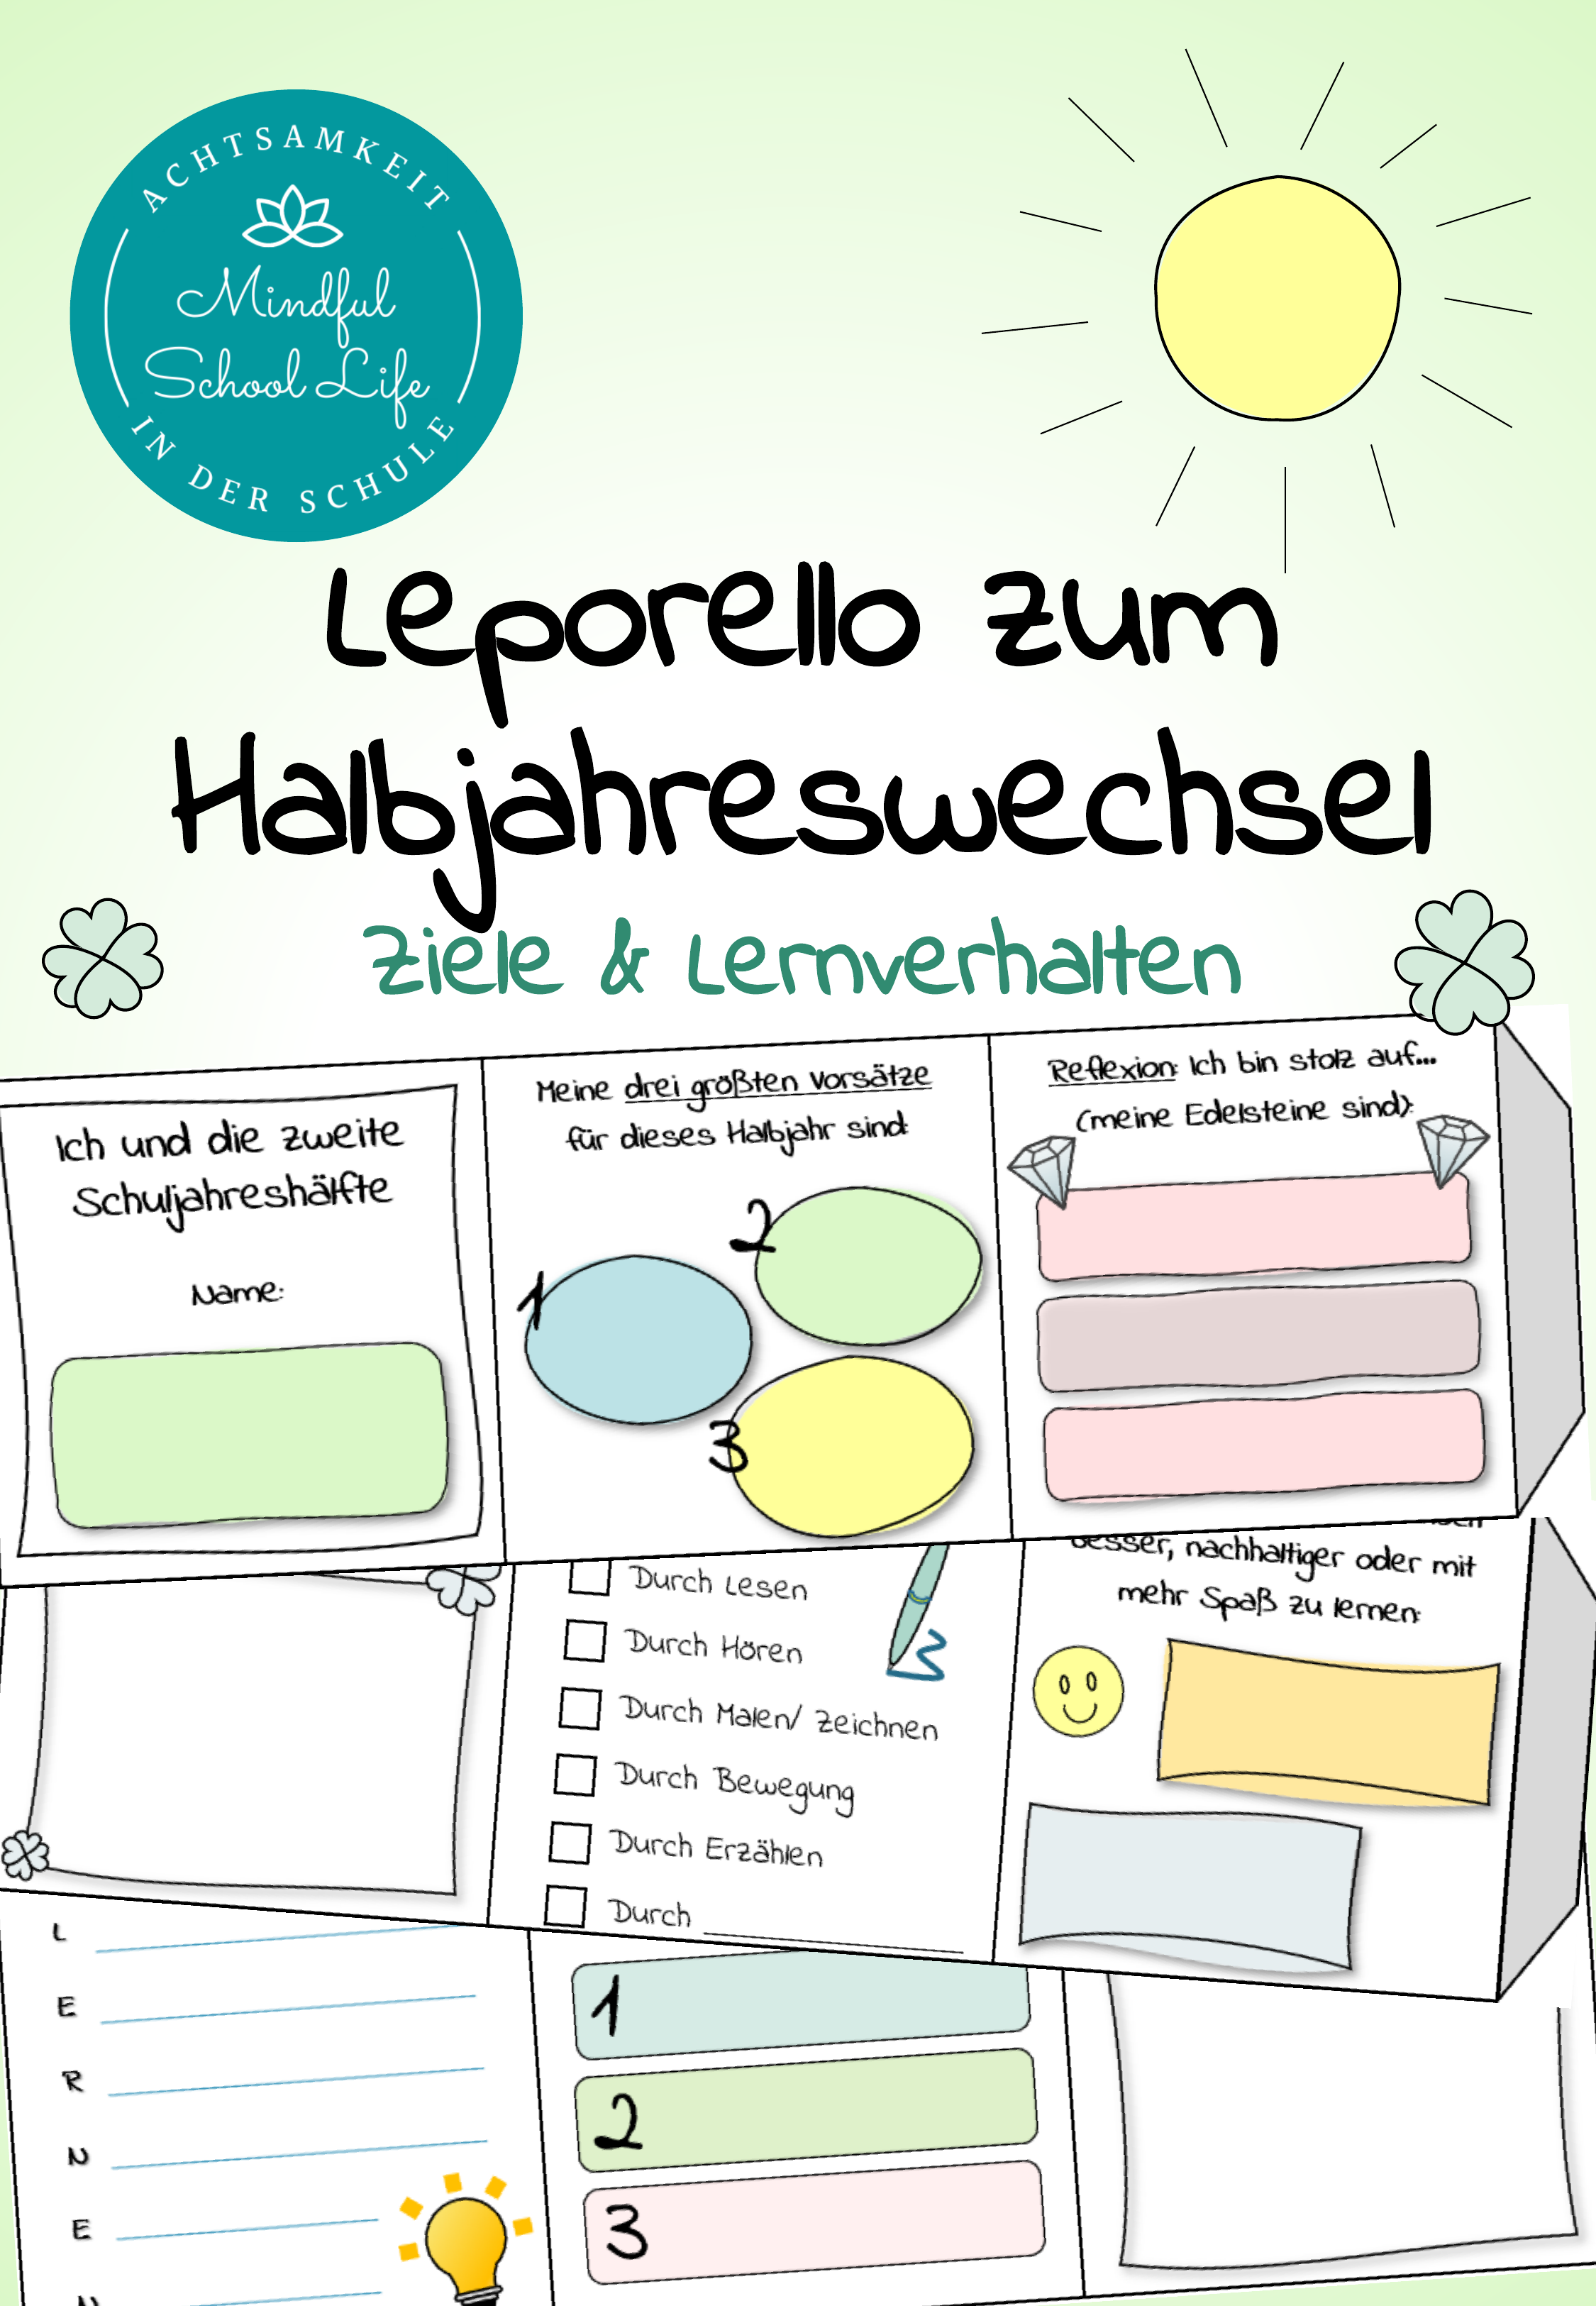 ACHTSAMKEIT
Mindful
School Life
IN DER SCHULE
Leporello zum
Halbjahreswechsel
Ziele & Lernverhalten
Ich und die zweite
Schuljahreshälfte
Name:
Meine drei größten Vorsätze
für dieses Halbjahr sind:
1
2
3
Reflexion: Ich bin stolz auf...
(meine Edelsteine sind):
Durch Lesen
Durch Hören
Durch Malen/ Zeichnen
Durch Bewegung
Durch Erzählen
Durch
besser, nachhaltiger oder mit
mehr Spaß zu lernen:
L
E
R
N
E
N
1
2
3